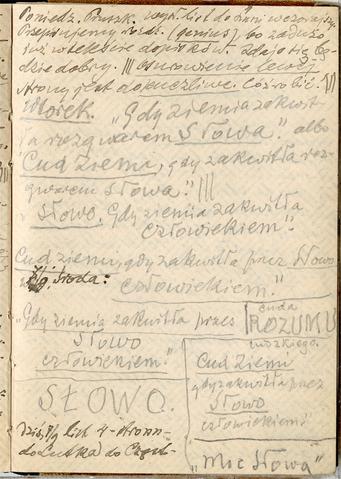 Poniedz. Pruszk. wysł. list do
Przepisujemy rozdz. (genius), bo za dużo
już w tekście dopisków. Zdaje się bę-
dzie dobry. ||| osunowienie lewej
strony jest dokuczliwe. Cóż robić. |||
Wtorek. "Gdy ziemia zakwit-
ła rozgwarem Słowa." albo
"Cud Ziemi, gdy zakwitła roz-
gwarem Słowa." |||
"Słowo. Gdy ziemia zakwitła
człowiekiem".
Cud ziemi, gdy zakwitła przez Słowo
człowiekiem."
środa:
"Gdy ziemia zakwitła przez
Słowo
człowiekiem."
cuda
ROZUMU
ludzkiego.
Cud Ziemi
gdy zakwitła przez
Słowo
człowiekiem"
SŁOWO.
Dziś, list 4-stronn-
do Lutka do
"Moc Słowa"